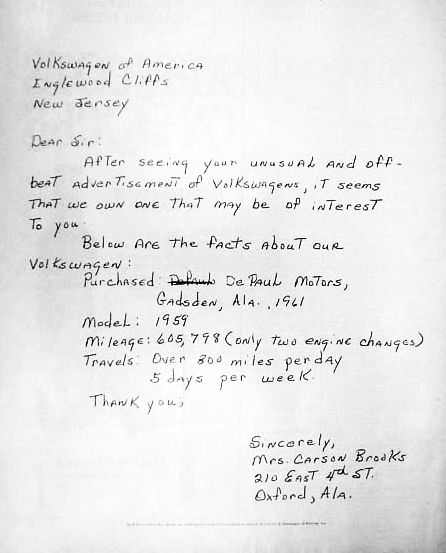 Volkswagen of America
Englewood Cliffs
New Jersey
Dear Sir:
After seeing your unusual and off-
beat advertisement of Volkswagens, it seems
that we own one that may be of interest
to you.
Below are the facts about our
Volkswagen:
Purchased: DePaul De Paul Motors,
Gadsden, Ala., 1961
Model: 1959
Mileage: 605,798 (only two engine changes)
Travels: Over 800 miles per day
5 days per week.
Thank you,
Sincerely,
Mrs. Carson Brooks
210 East 4th St.
Oxford, Ala.